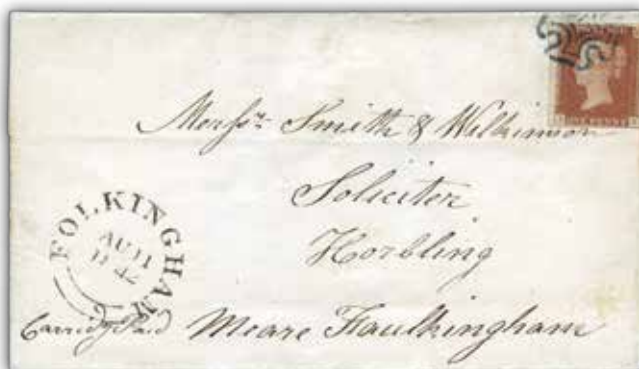 Messrs Smith & Wilkinson
Soliciter
Horbling
Meare Faulkingham
FOLKINGHAM
AU 11
1842
ONE PENNY